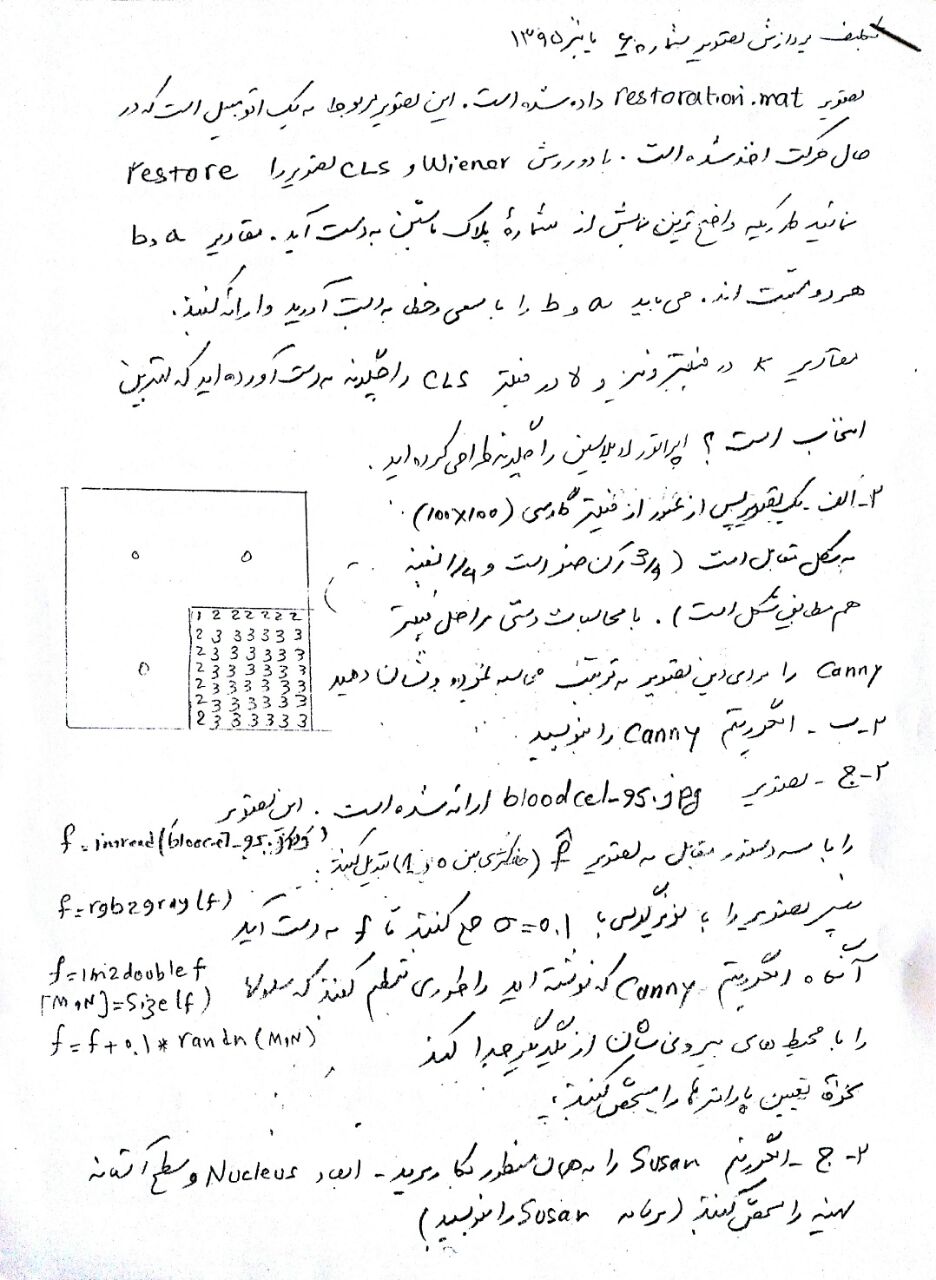 تکلیف پردازش تصویر شماره ۶ پائیز ۱۳۹۵
تصویر restoration.mat داده شده است. این تصویر مربوط به یک اتومبیل است که در
حال حرکت اخذ شده است. با دو روش Wiener و CLS تصویر را restore
نمائید طوریکه واضح ترین نمایش از شمارهٔ پلاک ماشین به دست آید. مقادیر a و b
هر دو مثبت اند. می باید a و b را با سعی و خطا به دست آورید و ارائه کنید.
مقادیر K در فیلتر وینر و γ در فیلتر CLS را چگونه به دست آورده اید که بهترین
انتخاب است؟ اپراتور لاپلاسین را چگونه طراحی کرده اید.
۲-الف- یک تصویر پس از عبور از فیلتر گاوسی (100×100)
به شکل مقابل است (3/4 آن صفر است و 1/4 بقیه
هم مطابق شکل است). با محاسبات دستی مراحل فیلتر
Canny را برای این تصویر به ترتیب محاسبه نموده و نشان دهید
0 0
0
1 2 2 2 2 2 2
2 3 3 3 3 3 3
2 3 3 3 3 3 3
2 3 3 3 3 3 3
2 3 3 3 3 3 3
2 3 3 3 3 3 3
2 3 3 3 3 3 3
۲-ب- الگوریتم Canny را بنویسید
۲-ج- تصویر bloodcel-95.jpg ارائه شده است. این تصویر
را با سه دستور مقابل به تصویر f (خاکستری بین 0 و 1) تبدیل کنید.
سپس تصویر را با نویز گوسی با σ=0.1 جمع کنید تا f به دست آید
آنگاه الگوریتم Canny که نوشته اید را طوری تنظیم کنید که سلولها
را با محیط های بیرونی شان از یکدیگر جدا کند
نحوهٔ تعیین پارامترها را مشخص کنید.
f=imread('bloodcel-95.jpg')
f=rgb2gray(f)
f=im2double f
[M,N]=size(f)
f=f+0.1*randn(M,N)
۲-ج- الگوریتم Susan را به همان منظور بکار برید- ابعاد Nucleus و سطح آستانه
بهینه را مشخص کنید (برنامه Susan را بنویسید)